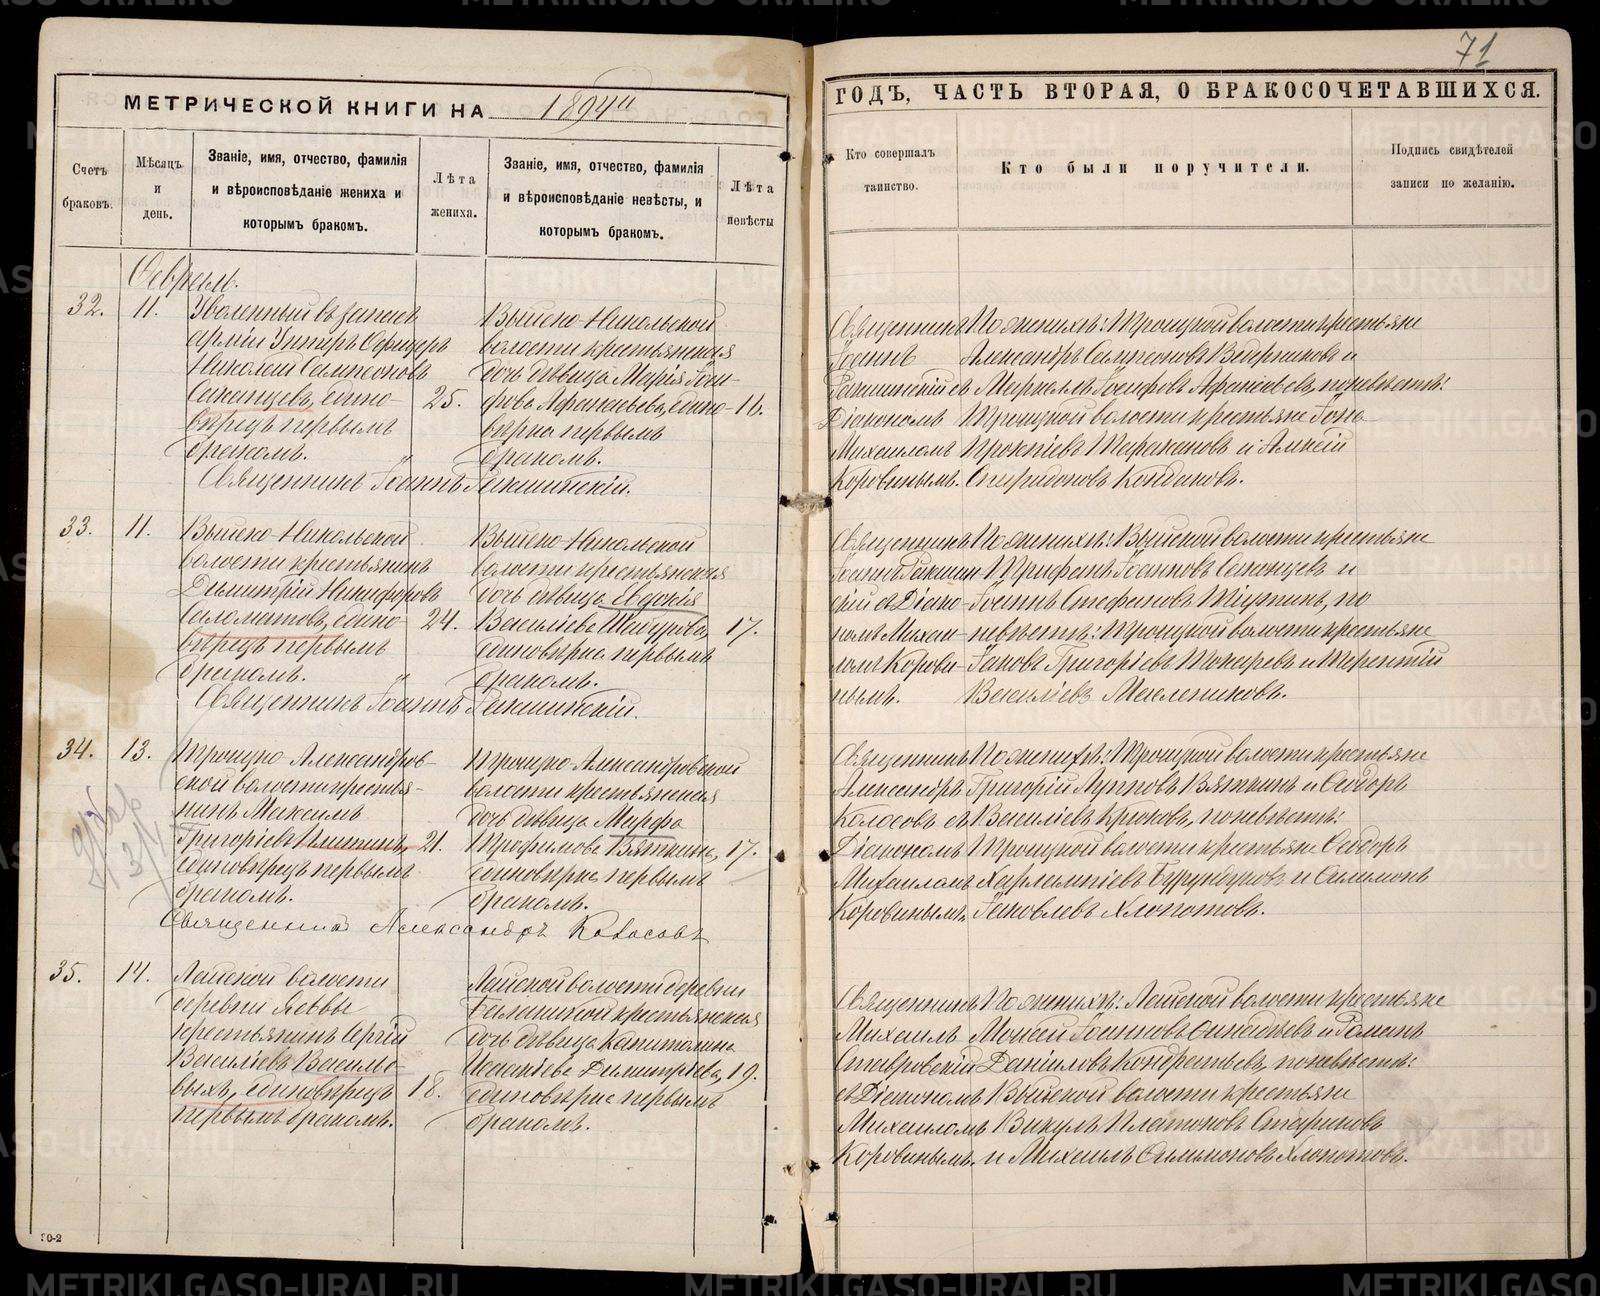 71
МЕТРИЧЕСКОЙ КНИГИ НА 1894й
ГОДЪ, ЧАСТЬ ВТОРАЯ, О БРАКОСОЧЕТАВШИХСЯ.
Счетъ браковъ.
Мѣсяцъ и день.
Званіе, имя, отчество, фамилія
и вѣроисповѣданіе жениха и
которымъ бракомъ.
Лѣта
жениха.
Званіе, имя, отчество, фамилія
и вѣроисповѣданіе невѣсты, и
которымъ бракомъ.
Лѣта
невѣсты
Кто совершалъ
таинство.
Кто были поручители.
Подпись свидѣтелей
записи по желанію.
Февраль.
32.
11.
Уволенный въ запасъ
арміи Унтеръ Офицеръ
Николай Сампсоновъ
Саканцевъ, едино-
вѣрецъ первымъ
бракомъ.
25.
Выйско-Никольской
волости крестьянская
дочь дѣвица Марія Іоси-
фова Афанасьева, едино-
вѣрка первымъ
бракомъ.
16.
Священникъ Іоаннъ Ракшинскій.
Священникъ
Іоаннъ
Ракшинскій съ
Діакономъ
Михаиломъ
Коровинымъ.
По женихѣ: Троицкой волости крестьяне
Александръ Сампсоновъ Ведерниковъ и
Маркелъ Іосифовъ Афанасьевъ, по невѣстѣ:
Троицкой волости крестьяне Іона
Прокпіевъ Тараканов и Алексій
Спиридоновъ Кондаковъ.
33.
11.
Выйско-Никольской
волости крестьянинъ
Димитрій Никифоровъ
Саломатовъ, едино-
вѣрецъ первымъ
бракомъ.
24.
Выйско-Никольской
волости крестьянская
дочь дѣвица Евдокія
Василіева Шатурова,
единовѣрка первымъ
бракомъ.
17.
Священникъ Іоаннъ Ракшинскій.
Священникъ
Іоаннъ Ракшин-
скій съ Діако-
номъ Михаи-
ломъ Корови-
нымъ.
По женихѣ: Выйской волости крестьяне
Трифонъ Іоанновъ Саканцевъ и
Іоаннъ Стефановъ Тіунинъ, по
невѣстѣ: Троицкой волости крестьяне
Іаковъ Григоріевъ Токаревъ и Терентій
Василіевъ Масленниковъ.
34.
13.
Троицко-Александров-
ской волости крестья-
нинъ Максимъ
Григоріевъ
единовѣрецъ первымъ
бракомъ.
21.
Троицко-Александровской
волости крестьянская
дочь дѣвица Марфа
Трофимова Вяткина,
единовѣрка первымъ
бракомъ.
17.
Священникъ Александръ Колосовъ
Священникъ
Александръ
Колосовъ съ
Діакономъ
Михаиломъ
Коровинымъ.
По женихѣ: Троицкой волости крестьяне
Григорій Лупповъ Вяткинъ и Ѳеодоръ
Василіевъ Крюковъ, по невѣстѣ:
Троицкой волости крестьяне Ѳеодоръ
Харлампіевъ Бурундуковъ и Симеонъ
Іаковлевъ Хлопотовъ.
35.
14.
Лайской волости
деревни Яввы
крестьянинъ Сергій
Василіевъ Василье-
выхъ, единовѣрецъ
первымъ бракомъ.
18.
Лайской волости деревни
Балакиной крестьянская
дочь дѣвица Капитолина
Исаакіева Димитріева,
единовѣрка первымъ
бракомъ.
19.
Священникъ
Михаилъ
Ставровскій
съ Діакономъ
Михаиломъ
Коровинымъ.
По женихѣ: Лайской волости крестьяне
Моисей Іоанновъ и Романъ
Даніиловъ Кондратьевъ, по невѣстѣ:
Выйской волости крестьяне
Викулъ Платоновъ Стариковъ
и Михаилъ Симеоновъ Хлопотовъ.
METRIKI.GASO-URAL.RU